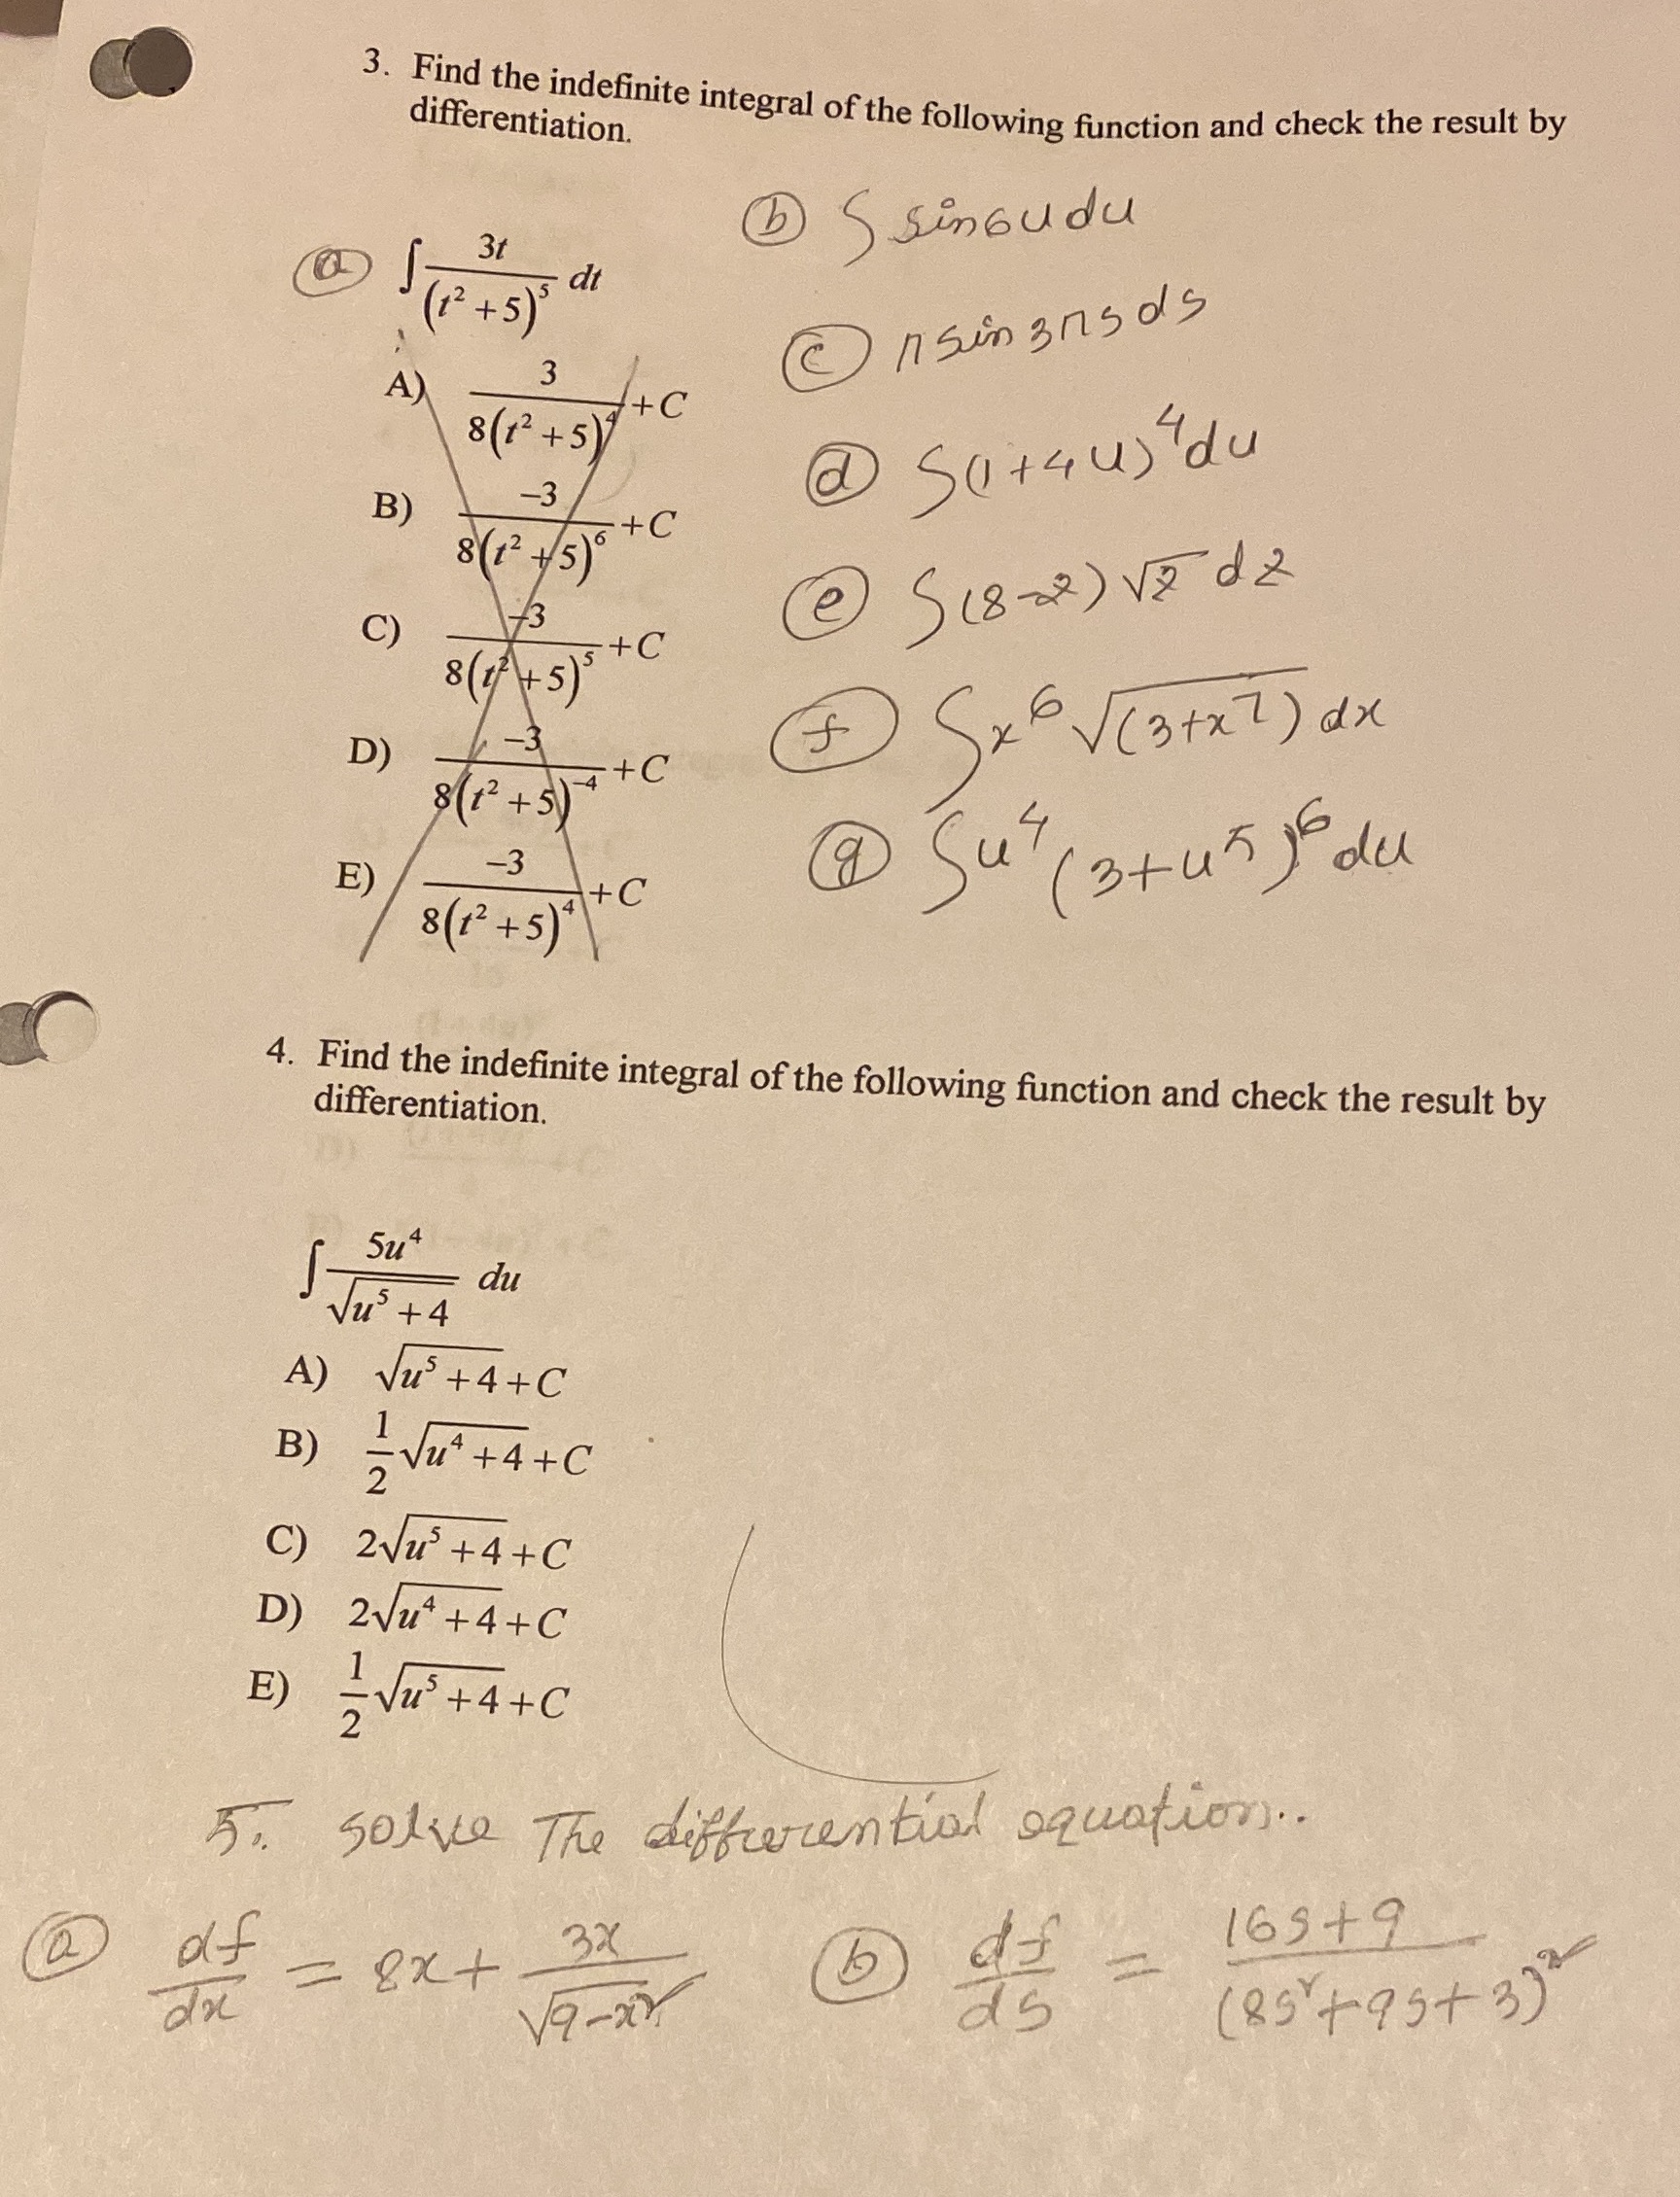 3. Find the indefinite integral of the following function and check the result by
differentiation.
ⓐ ∫ 3t/(t² + 5)⁵ dt
A) 3/8(t² + 5)⁴ + C
B) −3/8(t² + 5)⁶ + C
C) −3/8(t² + 5)⁵ + C
D) −3/8(t² + 5)⁻⁴ + C
E) −3/8(t² + 5)⁴ + C
ⓑ ∫ sin6u du
ⓒ π sin 3πs ds
ⓓ ∫(1+4u)⁴du
ⓔ ∫(8-z)√z dz
ⓕ ∫x⁶ √(3+x⁷) dx
ⓖ ∫u⁴ (3+u⁵)⁶ du
4. Find the indefinite integral of the following function and check the result by
differentiation.
∫ 5u⁴/√(u⁵ + 4) du
A) √(u⁵ + 4) + C
B) 1/2 √(u⁴ + 4) + C
C) 2√(u⁵ + 4) + C
D) 2√(u⁴ + 4) + C
E) 1/2 √(u⁵ + 4) + C
5. solve The differential equation..
ⓐ df/dx = 8x + 3x/√(9-x²)
ⓑ df/ds = 16s+9/(8s²+9s+3)²